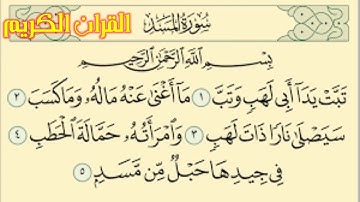 القرآن الكريم
سُورَةُ المَسَدِ
بِسْمِ اللَّهِ الرَّحْمَٰنِ الرَّحِيمِ
تَبَّتْ يَدَآ أَبِى لَهَبٍ وَتَبَّ ١ مَآ أَغْنَىٰ عَنْهُ مَالُهُۥ وَمَا كَسَبَ ٢
سَيَصْلَىٰ نَارًا ذَاتَ لَهَبٍ ٣ وَٱمْرَأَتُهُۥ حَمَّالَةَ ٱلْحَطَبِ ٤
فِى جِيدِهَا حَبْلٌ مِّن مَّسَدٍۭ ٥